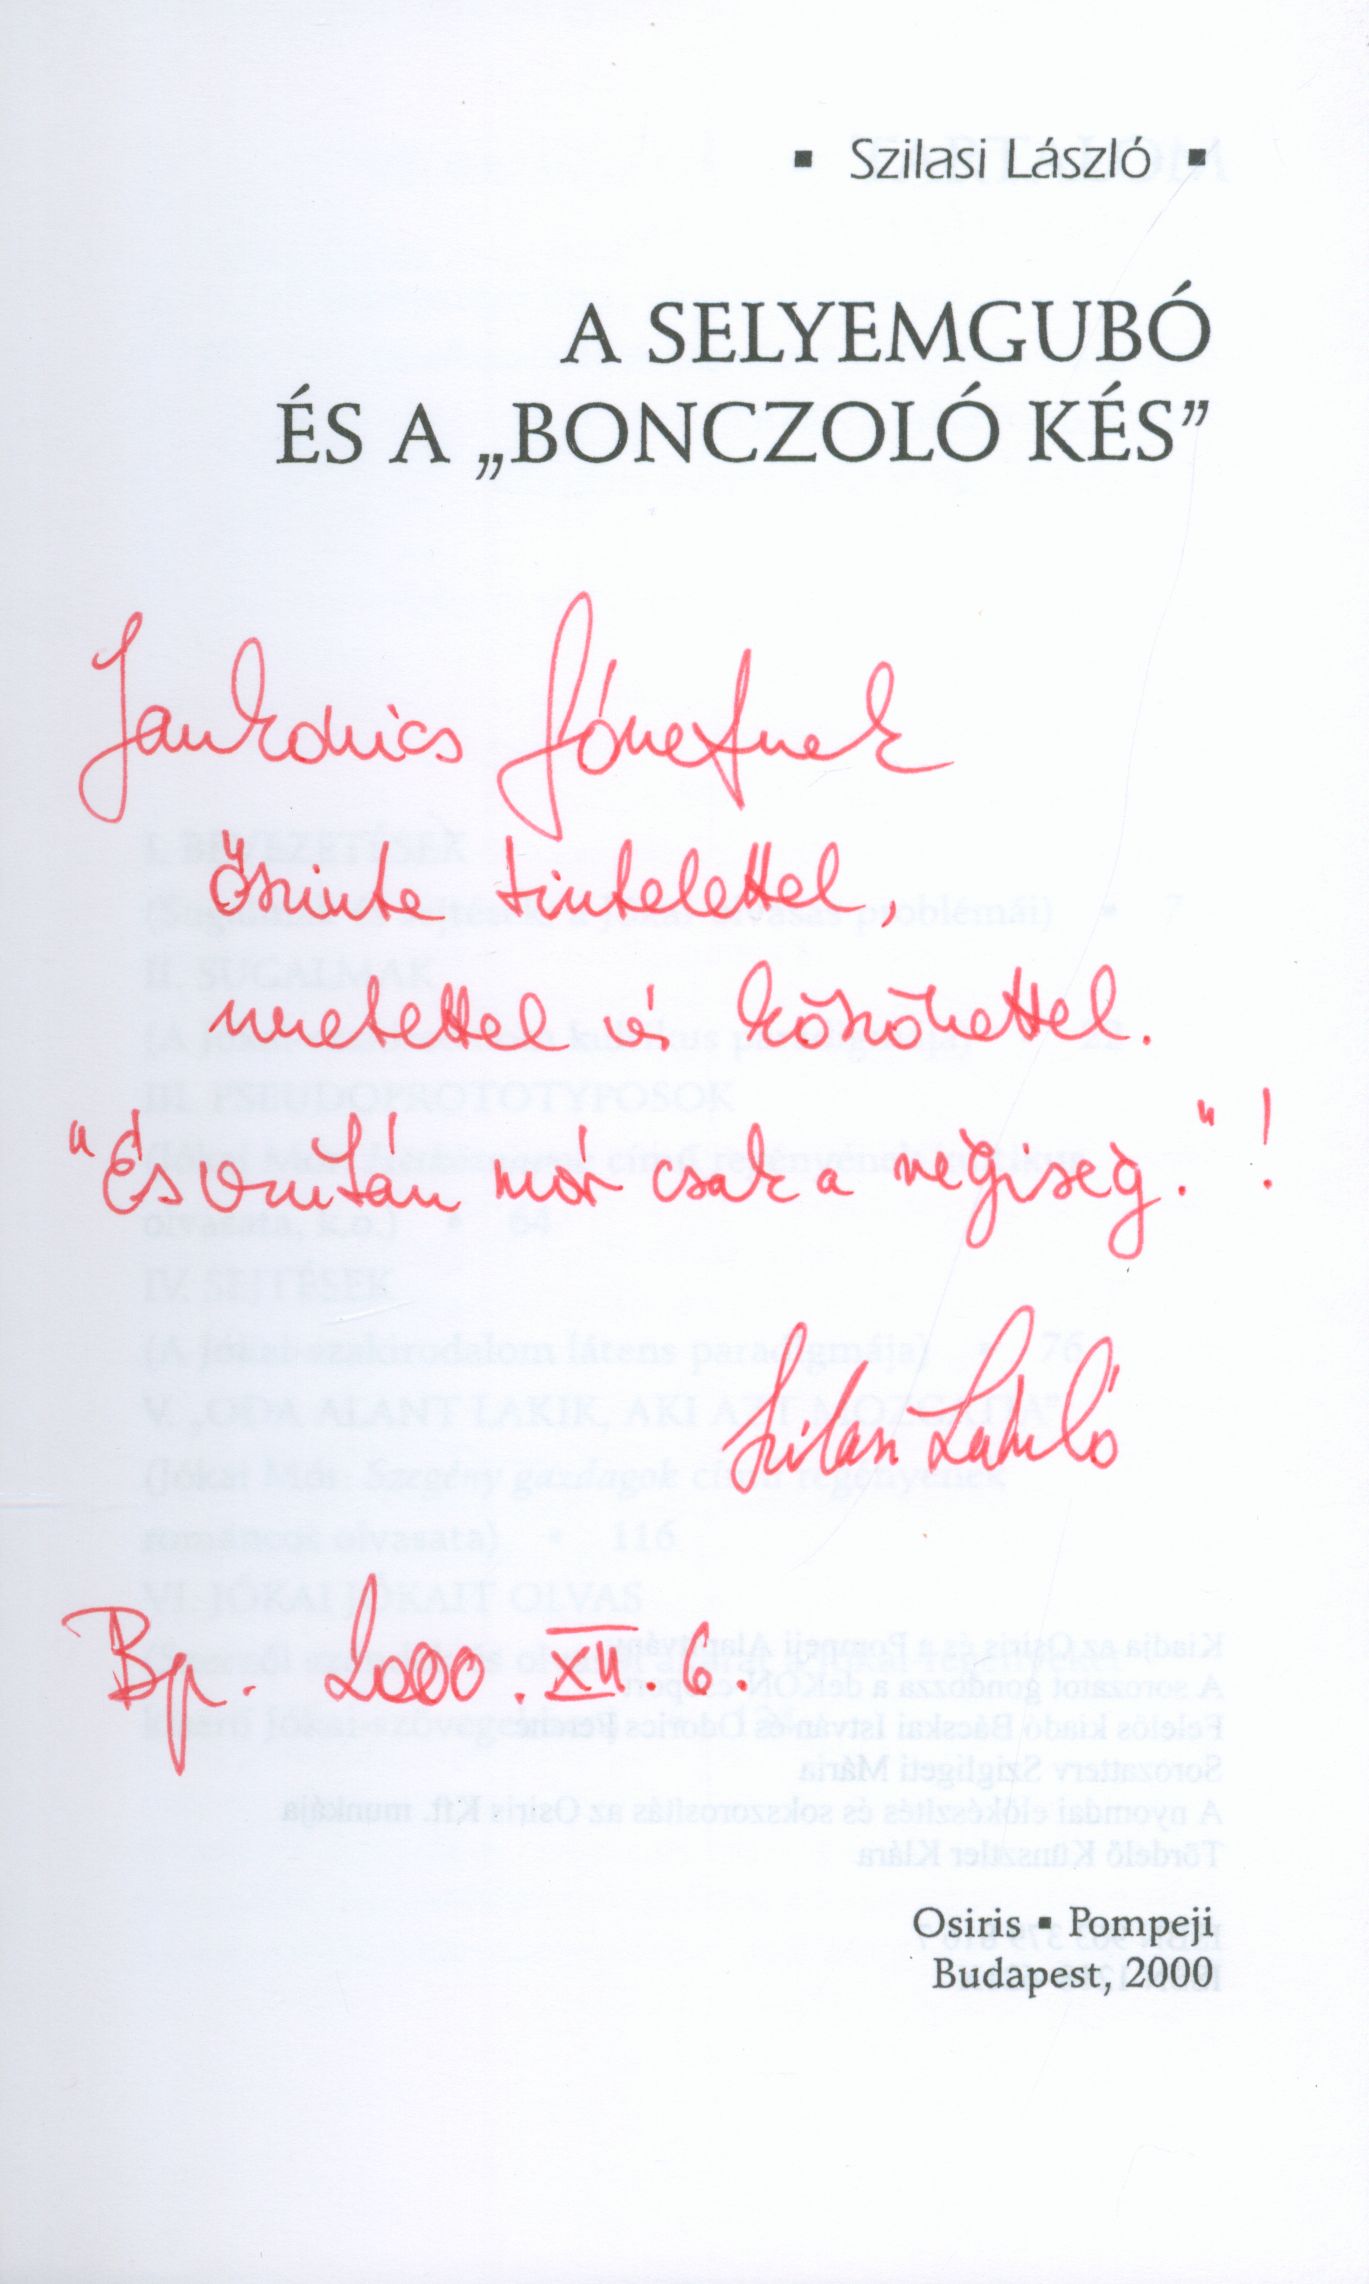 ▪ Szilasi László ▪
A SELYEMGUBÓ
ÉS A „BONCZOLÓ KÉS”
Jankovics Józsefnek
őszinte tisztelettel,
szeretettel és köszönettel.
"És azután már csak a régiség."!
Szilasi László
Bp. 2000. XII. 6.
Osiris ▪ Pompeji
Budapest, 2000